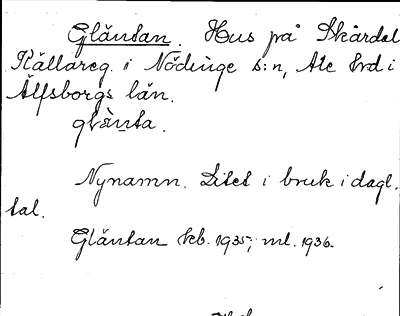 Gläntan. Hus på Skårdal
Källareg. i Nödinge s:n, Ale hrd i
Älfsborgs län.
glànta.
Nynamn. Litet i bruk i dagl.
tal.
Gläntan kb. 1935; ml. 1936.